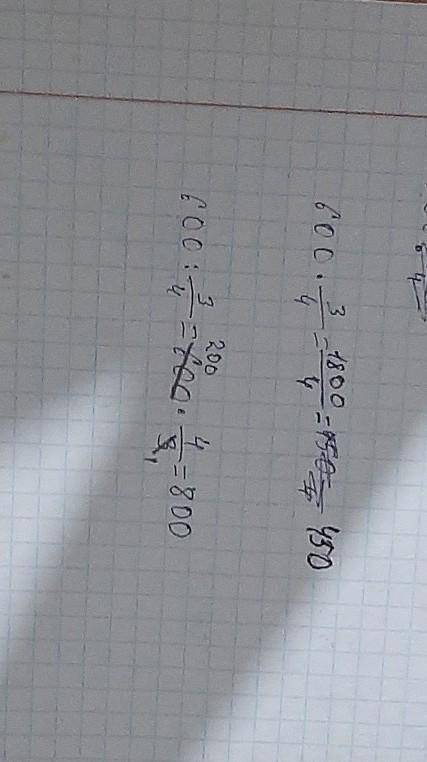 600 · 3/4 = 1800/4 = 450
600 : 3/4 = 600 200 · 4/3 1 = 800